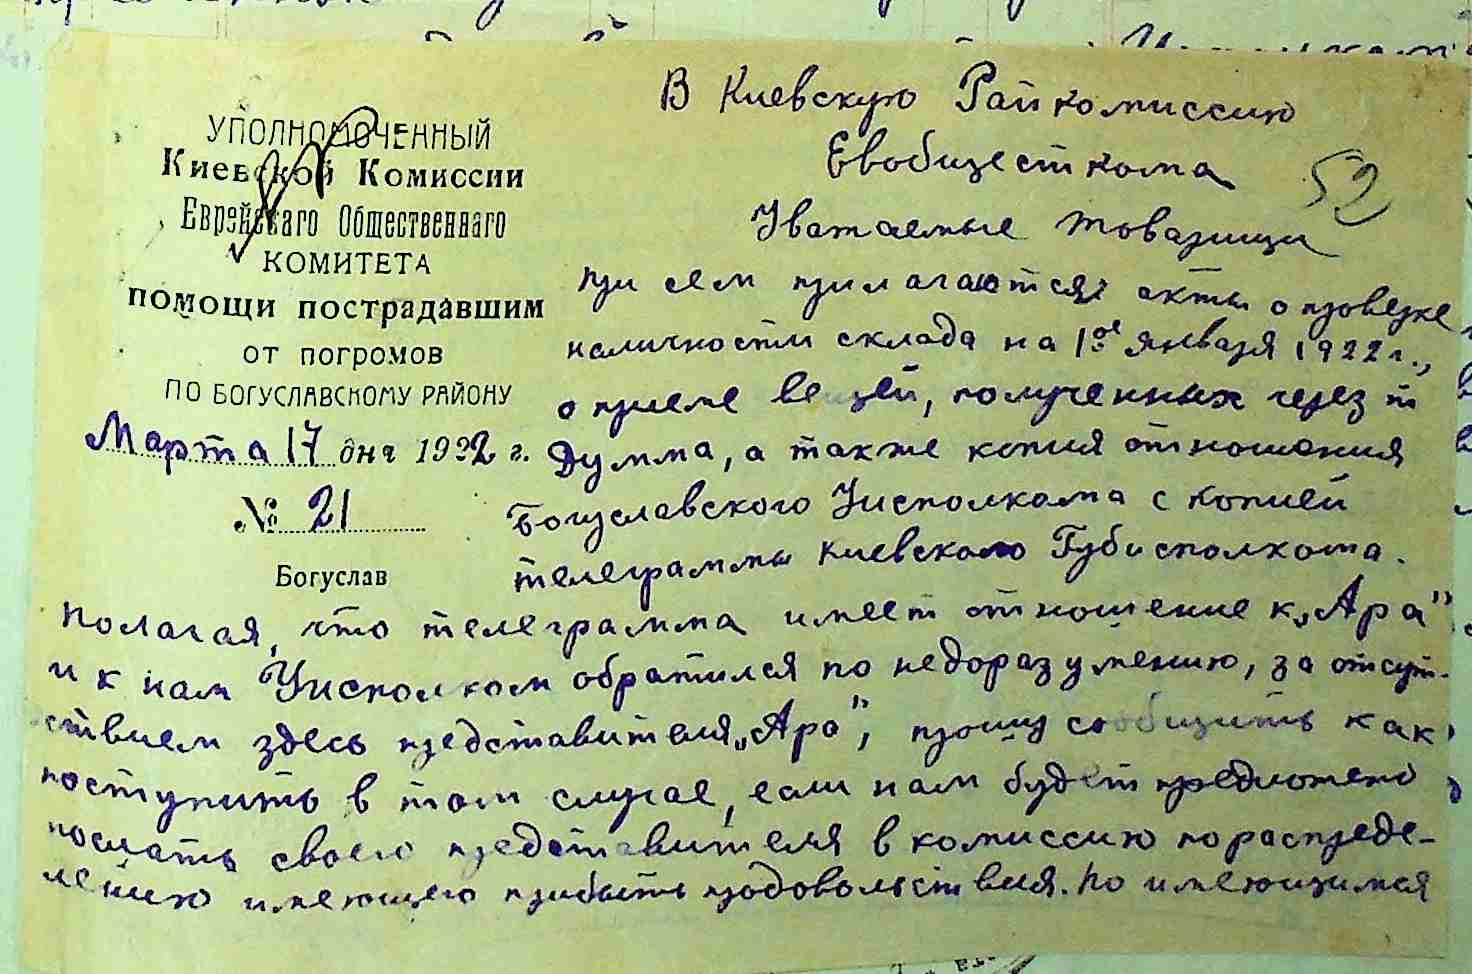 УПОЛНОМОЧЕННЫЙ
Киевской Комиссии
Еврейскаго Общественнаго
КОМИТЕТА
помощи пострадавшим
от погромов
ПО БОГУСЛАВСКОМУ РАЙОНУ
Марта 17 дня 1922 г.
№ 21
Богуслав
52
В Киевскую Райкомиссию
Евобщесткома
Уважаемые товарищи
При сем прилагаются акты о проверке
наличности склада на 1ое января 1922 г.,
о приеме вещей, полученных через т
Думма, а также копия отношения
Богуславского Уисполкома с копией
телеграммы Киевского Губисполкома.
Полагая, что телеграмма имеет отношение к „Ара"
и к нам Уисполком обратился по недоразумению, за отсут-
ствием здесь представителя „Ара", прошу сообщить как
поступить в том случае, если нам будет предложено
послать своего представителя в комиссию по распреде-
лению имеющего прибыть продовольствия. По имеющимся